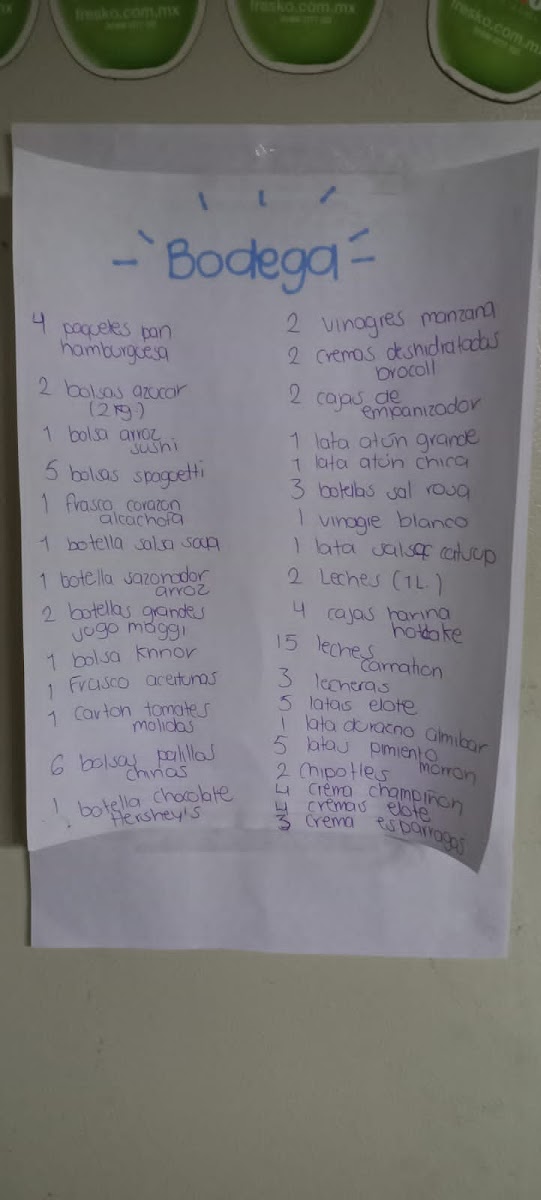 fresko.com.mx
fresko.com.mx
fresko.com.m
Bodega
4 paquetes pan
hamburguesa
2 bolsas azucar
(2 kg)
1 bolsa arroz
sushi
5 bolsas spaguetti
1 frasco corazon
alcachofa
1 botella salsa soya
1 botella sazonador
arroz
2 botellas grandes
jugo maggi
1 bolsa Knnor
1 Frasco aceitunas
1 carton tomates
molidas
6 bolsas palillos
chinos
1 botella chocolate
Hershey's
2 vinagres manzana
2 cremas deshidratadas
brocoll
2 cajas de
empanizador
1 lata atún grande
1 lata atún chica
3 botellas sal rosa
1 vinagre blanco
1 lata salsa catsup
2 Leches (1L.)
4 cajas harina
hotcake
15 leches
carnation
3 lecheras
5 latas elote
1 lata durazno almibar
5 latas pimiento
morron
2 chipotles
4 crema champiñon
4 cremas elote
3 crema esparragos